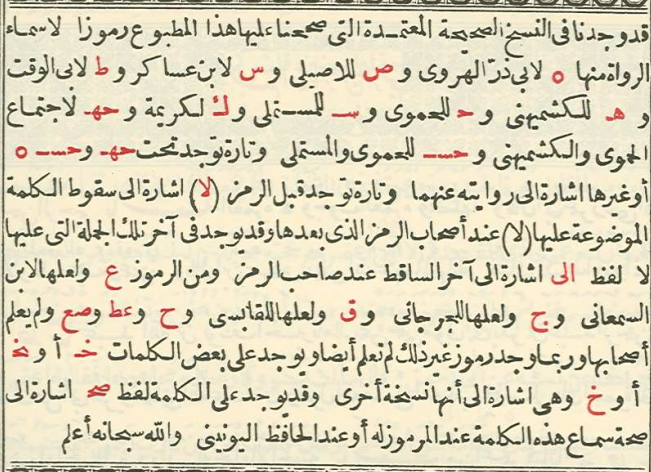 قد وجدنا فى النسخ الصحيحة المعتمدة التى صححنا عليها هذا المطبوع رموزا لاسماء
الرواة منها ه لابى ذر الهروى و ص للاصيلى و س لابن عساكر و ط لابى الوقت
و هـ للكشميهنى و حـ للحموى و سـ للمستملى و ك لكريمة و حهـ لاجتماع
الحموى والكشميهنى و حسـ للحموى والمستملى وتارة توجد تحت حهـ وحسـ ه
أو غيرها اشارة الى روايته عنهما وتارة توجد قبل الرمز (لا) اشارة الى سقوط الكلمة
الموضوعة عليها (لا) عند أصحاب الرمز الذى بعدها وقد يوجد فى آخر تلك الجملة التى عليها
لا لفظ الى اشارة الى آخر الساقط عند صاحب الرمز ومن الرموز ع ولعلها لابن
السمعانى و ج ولعلها للجرجانى و ق ولعلها للقابسى و ح وعط وصع ولم يعلم
أصحابها وربما وجد رموز غير ذلك لم نعلم أيضا ويوجد على بعض الكلمات خـ أو نخ
أو خ وهى اشارة الى أنها نسخة أخرى وقد يوجد على الكلمة لفظ صح اشارة الى
صحة سماع هذه الكلمة عند المرموز له أو عند الحافظ اليونينى والله سبحانه أعلم